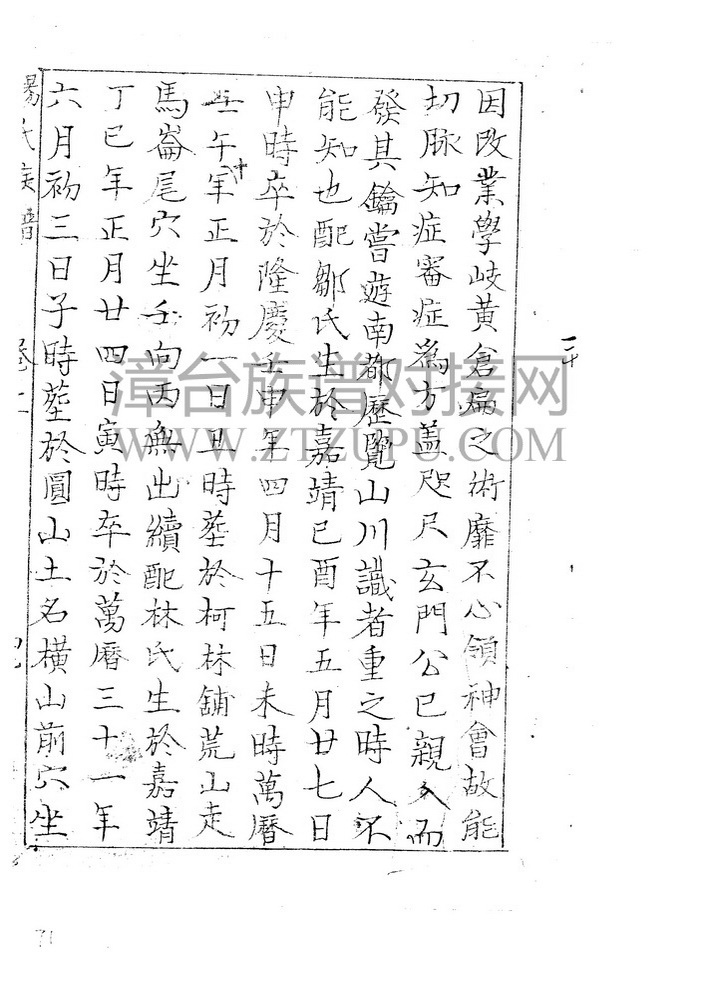 因改業學岐黃倉扁之術靡不心領神會故能
切脉知症審症為方盖咫尺玄門公已親入而
發其鑰嘗遊南都歷覽山川識者重之時人不
能知也配鄒氏生於嘉靖己酉年五月廿七日
申時卒於隆慶壬申年四月十五日未時萬曆
壬午十年正月初一日丑時塟於柯林鋪荒山走
馬崙尾穴坐壬向丙無出續配林氏生於嘉靖
丁巳年正月廿四日寅時卒於萬曆三十一年
六月初三日子時塟於圓山土名橫山前穴坐
楊氏族譜
三十
漳台族谱对接网
WWW.ZTZUPU.COM
71